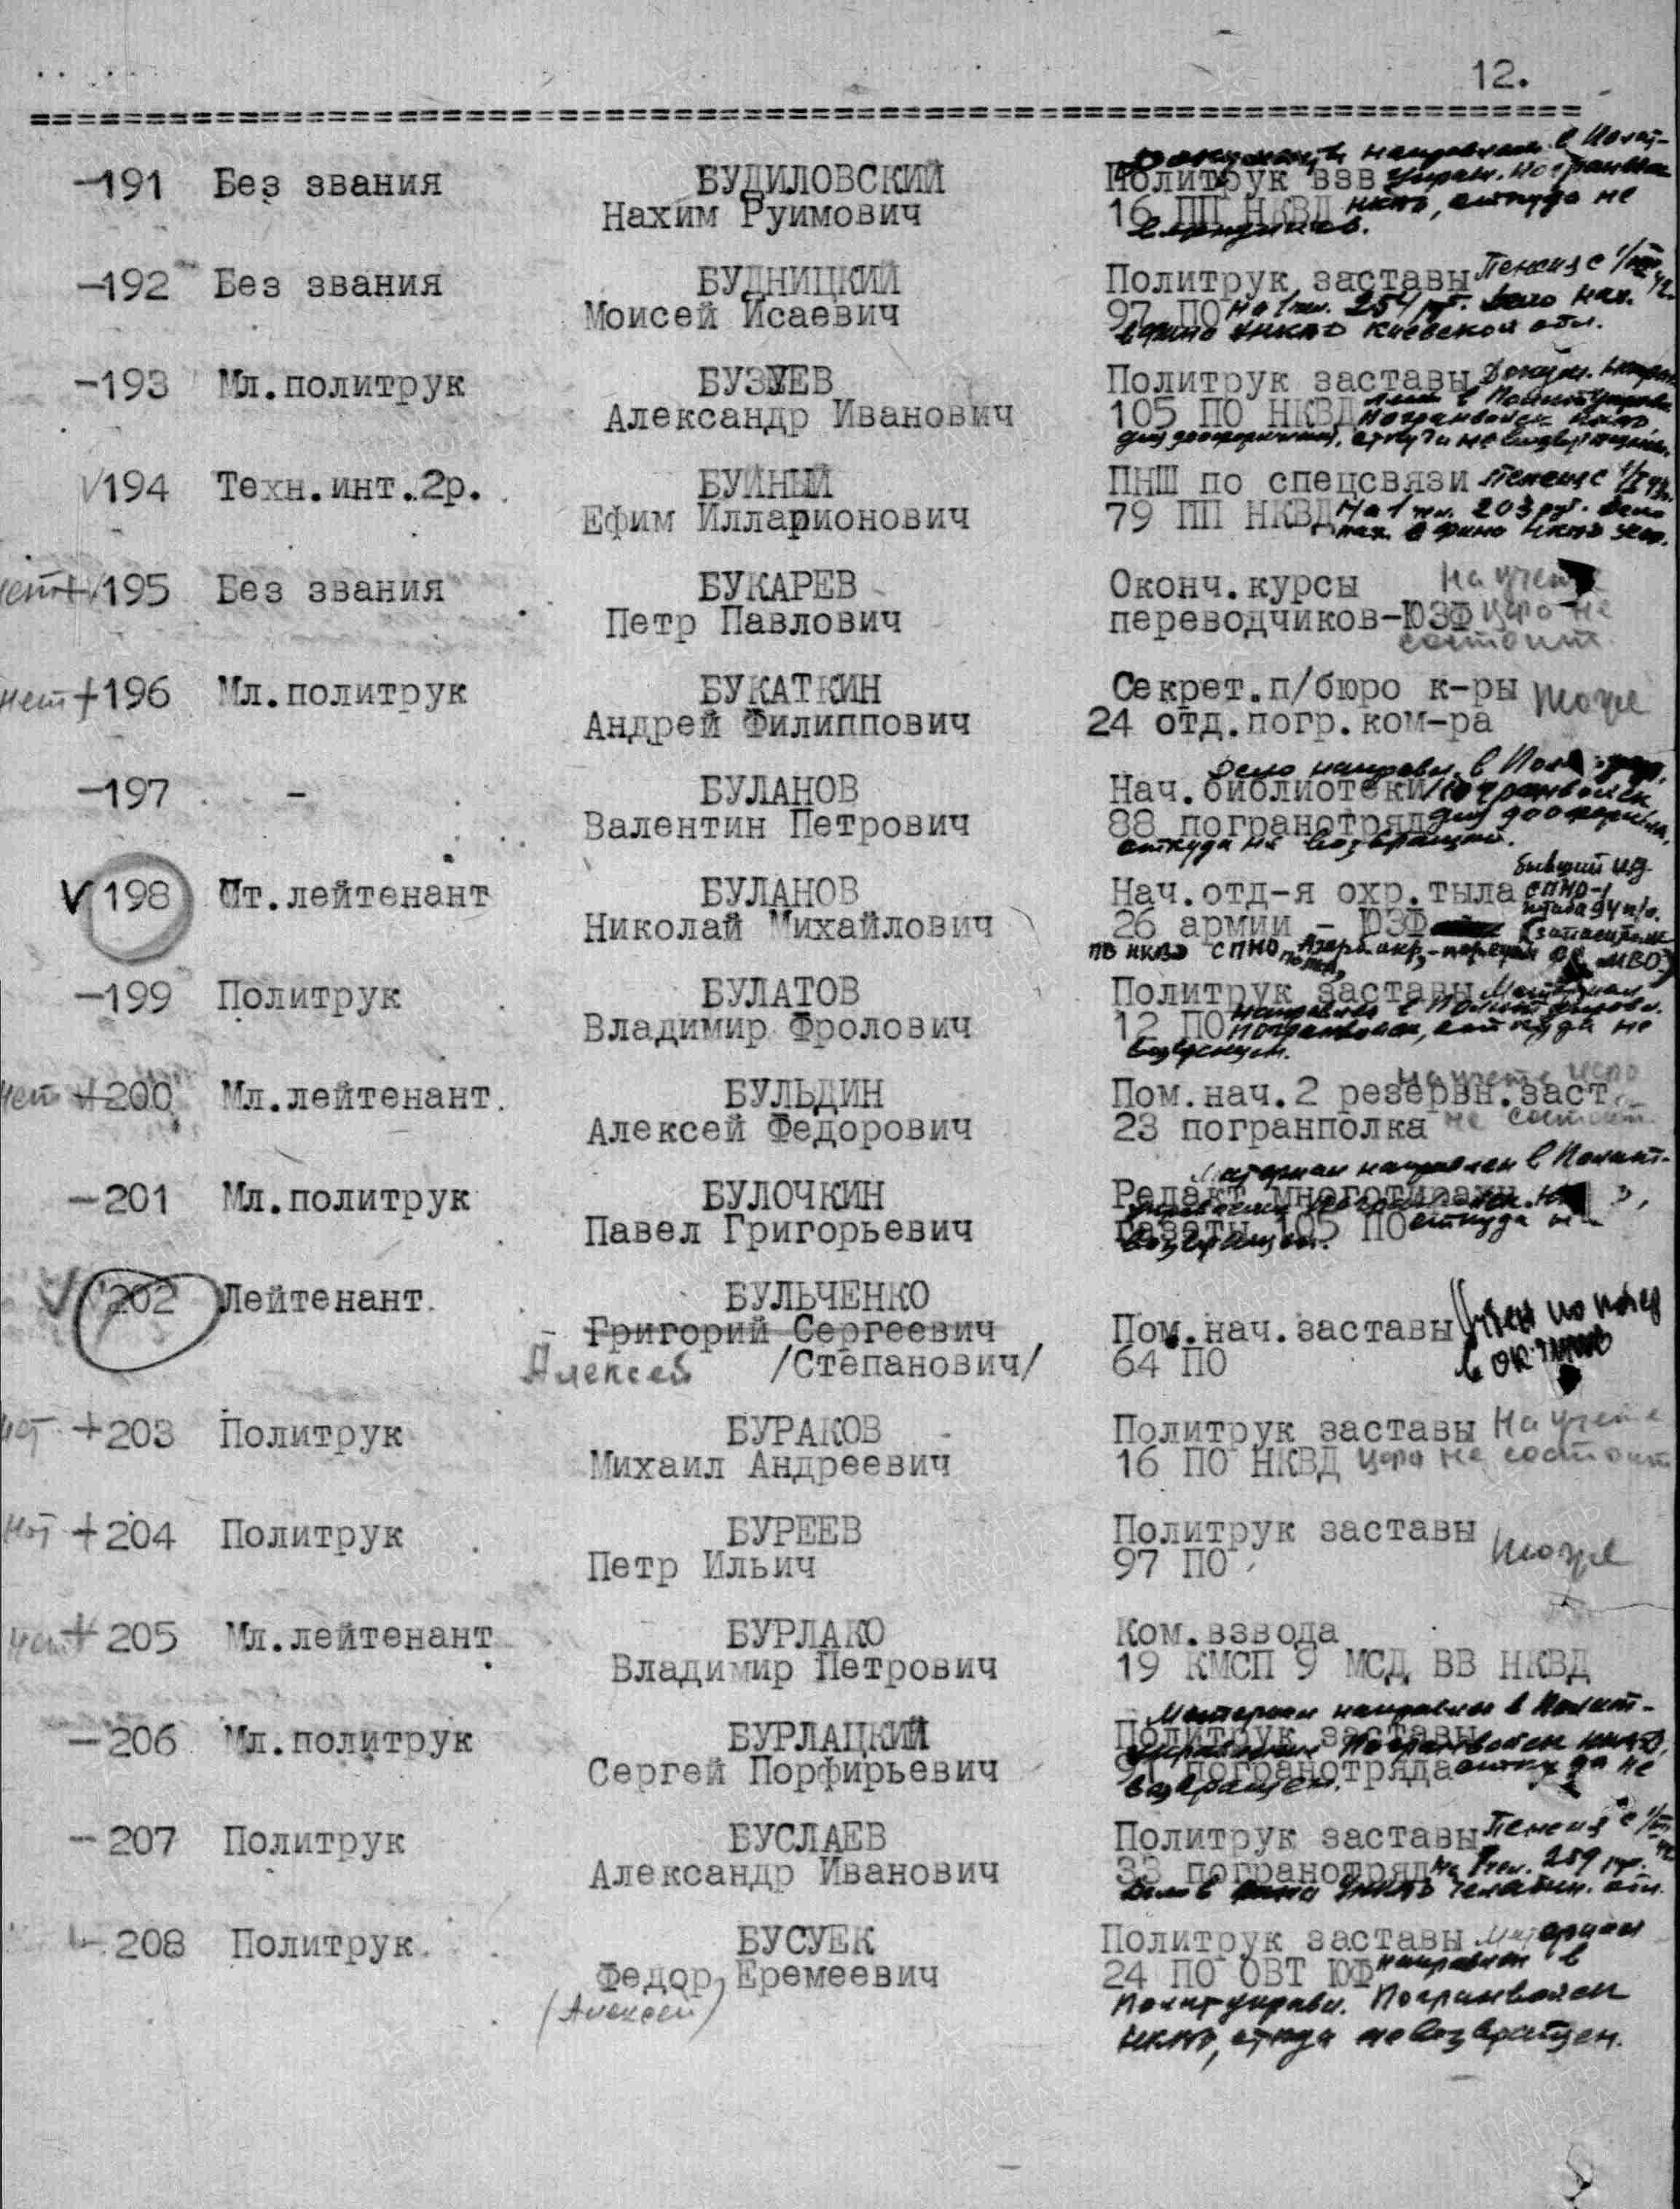 12.
-191 Без звания БУДИЛОВСКИЙ Политрук взв
Нахим Руимович 16 ПП НКВД НКВД, откуда не
-192 Без звания БУДНИЦКИЙ Политрук заставы Пенсия с
Моисей Исаевич 97 ПО на 1 чл. 254 руб. Дело нах.
в фино УНКВД Киевской обл.
-193 Мл.политрук БУЗУЕВ Политрук заставы
Александр Иванович 105 ПО НКВД Погранвойск НКВД
для дооформления, откуда не возвращен.
√194 Техн.инт.2р. БУЙНЫЙ ПНШ по спецсвязи Пенсия с
Ефим Илларионович 79 ПП НКВД На 1 чл. 203 руб. Дело
нах. в фино НКВД
нет+√195 Без звания БУКАРЕВ Оконч.курсы На учете
Петр Павлович переводчиков-ЮЗФ ЦФПО не
состоит.
нет+196 Мл.политрук БУКАТКИН Секрет.п/бюро к-ры тоже
Андрей Филиппович 24 отд.погр.ком-ра
Дело направл. в
-197 - БУЛАНОВ Нач.библиотеки Погранвойск
Валентин Петрович 88 погранотряд для дооформ
откуда не возвращен.
бывший
√198 Ст.лейтенант БУЛАНОВ Нач.отд-я охр.тыла
Николай Михайлович 26 армии - ЮЗФ
-199 Политрук БУЛАТОВ Политрук заставы Материал
направлен в Политуправл.
Владимир Фролович 12 ПО Погранвойск, откуда не
возвращен.
нет+200 Мл.лейтенант. БУЛЬДИН Пом.нач.2 резервн.заст. на учете ЦФПО
Алексей Федорович 23 погранполка не состоит
Материал направлен в Полит-
-201 Мл.политрук БУЛОЧКИН Редакт.многотиражн.
Павел Григорьевич газеты 105 ПО откуда не
возвращен.
√202 Лейтенант. БУЛЬЧЕНКО
- Григорий Сергеевич Пом.нач.заставы
Алексей /Степанович/ 64 ПО
нет +203 Политрук БУРАКОВ Политрук заставы На учете
Михаил Андреевич 16 ПО НКВД ЦФПО не состоит
нет +204 Политрук БУРЕЕВ Политрук заставы тоже
Петр Ильич 97 ПО
нет+205 Мл.лейтенант БУРЛАКО Ком.взвода
Владимир Петрович 19 КМСП 9 МСД ВВ НКВД
Материал направлен в Полит-
-206 Мл.политрук БУРЛАЦКИЙ Политрук заставы
управление Погранвойск НКВД,
Сергей Порфирьевич 91 погранотряда откуда не
возвращен.
-207 Политрук БУСЛАЕВ Политрук заставы Пенсия с
Александр Иванович 33 погранотряд на 1 чл. 259 руб.
Дело в фино УНКВД Челябин. обл.
208 Политрук. БУСУЕК Политрук заставы Материал
Федор Еремеевич 24 ПО ОВТ ЮФ направлен в
(Алексей) Политуправл. Погранвойск
НКВД, откуда не возвращен.